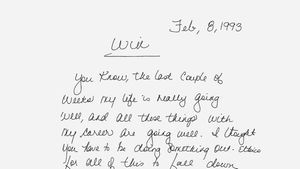 Feb, 8, 1993
Win
You Know, the last couple of
weeks my life is really going
well, and all these things with
my career are going well. I thought
you have to be doing something out.
for all of this to fall down